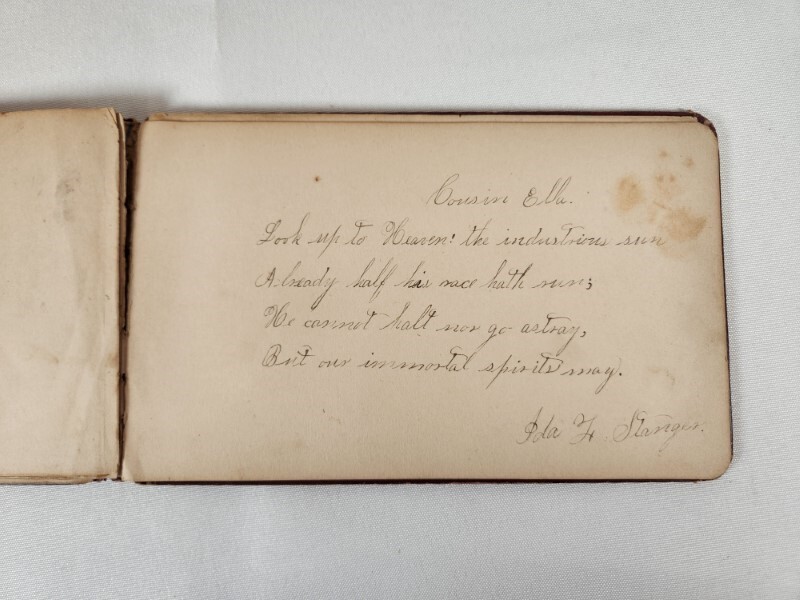 Cousin Ella.
Look up to Heaven! the industrious sun
Already half his race hath run;
He cannot halt nor go astray,
But our immortal spirits may.
Ida F. Stanger.